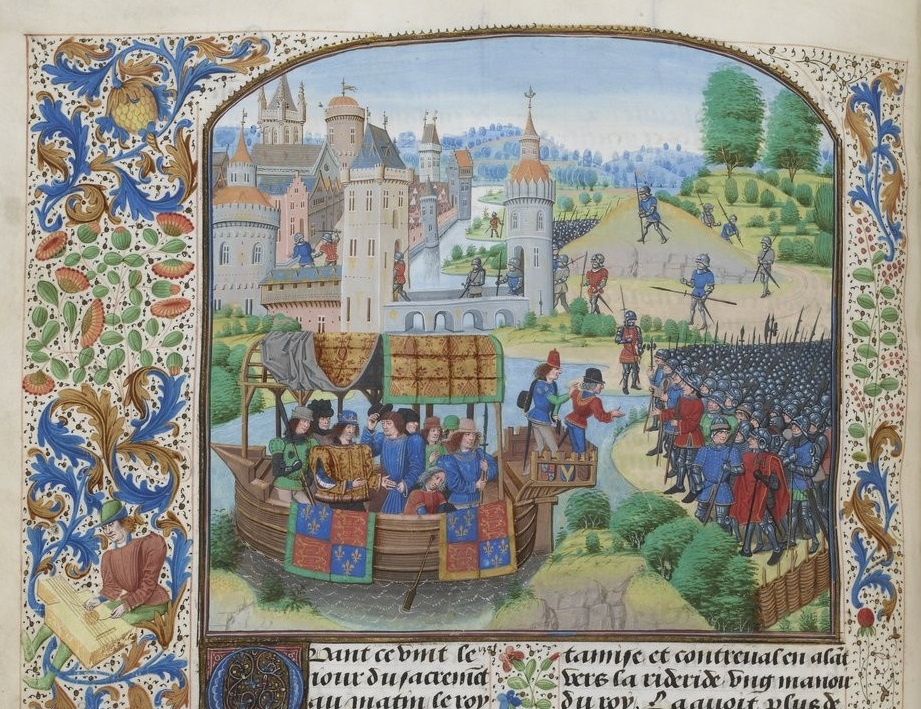 Quant ce vint le
iour du sacremēt
au matin le roy
tamise et contreual en alāt
vers la rideride vng manoir
du roy. La auoit plus de